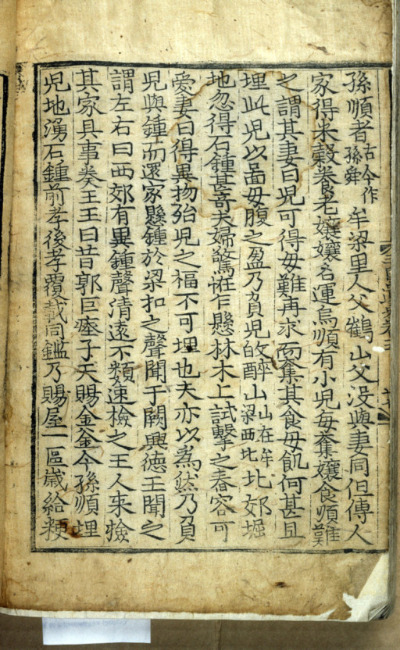 孫順者古今作孫舜牟梁里人父鶴山父没與妻同但傳人
家得米穀養老孃孃名運烏順有小兒每奪孃食順難
之謂其妻曰兒可得母難再求而奪其食母飢何甚且
埋此兒以啚母腹之盈乃負兒皈醉山山在牟梁西北北郊堀
地忽得石鍾甚奇夫婦驚恠乍懸林木上試擊之舂容可
愛妻曰得異物殆兒之福不可埋也夫亦以爲然乃負
兒與鍾而還家懸鍾於梁扣之聲聞于闕興德王聞之
謂左右曰西郊有異鍾聲清遠不類速檢之王人來撿
其家具事奏王王曰昔郭巨瘞子天賜金釜今孫順埋
兒地湧石鍾前孝後孝覆載同鑑乃賜屋一區歲給粳